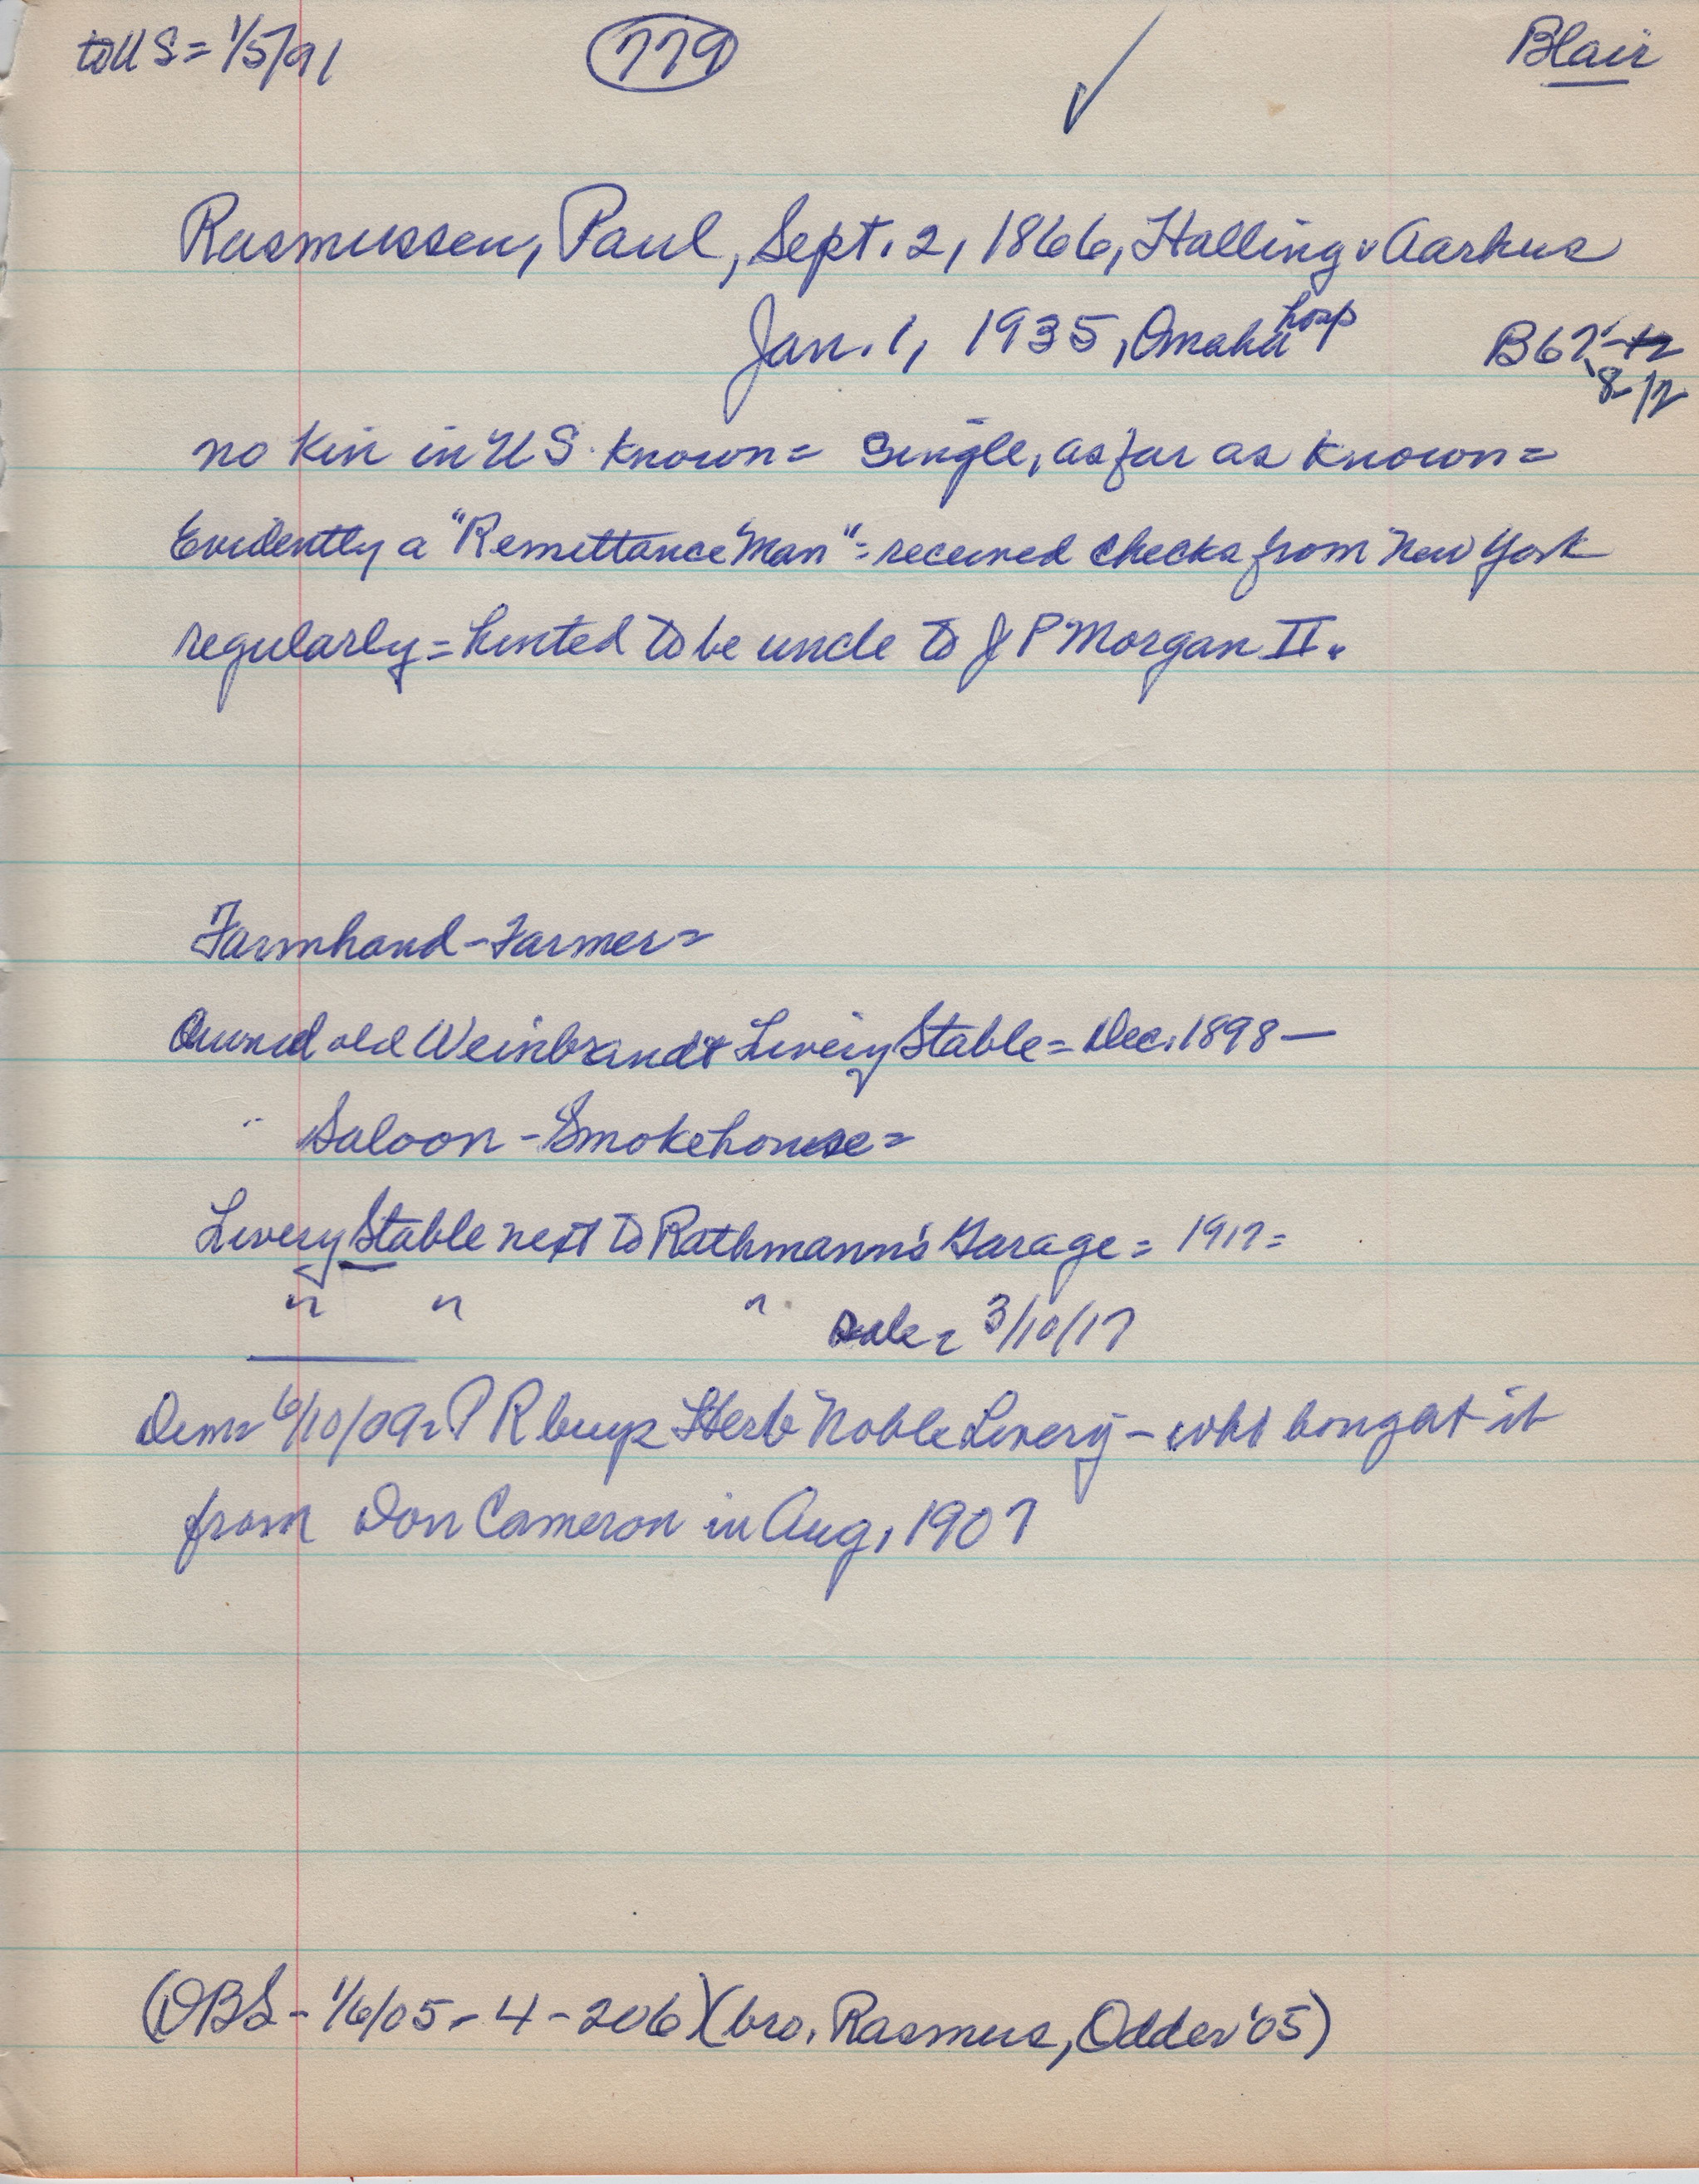 to US = 1/5/91 779 ✓ Blair
Rasmussen, Paul, Sept. 2, 1866, Halling v Aarhus
Jan. 1, 1935, Omaha hosp
B67-12
8/12
no kin in US. known = Single, as far as known =
Evidently a "Remittance Man" = received checks from New York
regularly = hinted to be uncle to J P Morgan II.
Farmhand - Farmer =
Owned old Weinbrandt Livery Stable = Dec. 1898 —
" Saloon - Smokehouse =
Livery Stable next to Rathmann's Garage = 1917 =
" " " sale = 3/10/17
Dem = 6/10/09 = P R buys Herb Noble Livery - who bought it
from Don Cameron in Aug, 1907
(DBS - 1/6/05 - 4 - 206) (bro. Rasmus, Odder '05)